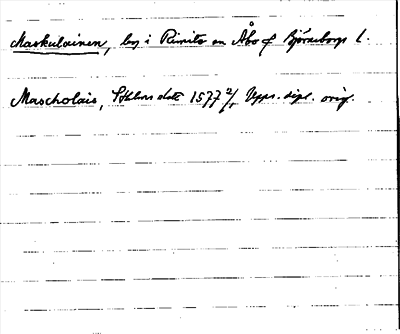 Maskulainen, by i Rimito sn Åbo o Björneborgs l.
Mascholais, Sthlms slott 1577 2/1 Upps. dipl. orig.